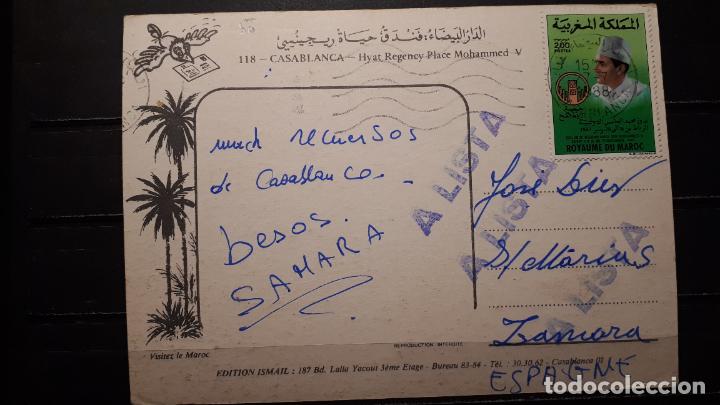 الدار البيضاء: فندق حياة ريجينسي
118 - CASABLANCA - Hyat Regency Place Mohammed V
المملكة المغربية
2,00
POSTES
ROYAUME DU MAROC
15
88
A LISTA
A LISTA
A LISTA
recuersos
de Casablanca
besos.
SAHARA
José
Zamora
ESPAGNE
REPRODUCTION INTERDITE
Visitez le Maroc
EDITION ISMAIL : 187 Bd. Lalla Yacout 3ème Etage - Bureau 83-84 - Tél. : 30.30.62 - Casablanca
todocoleccion.net